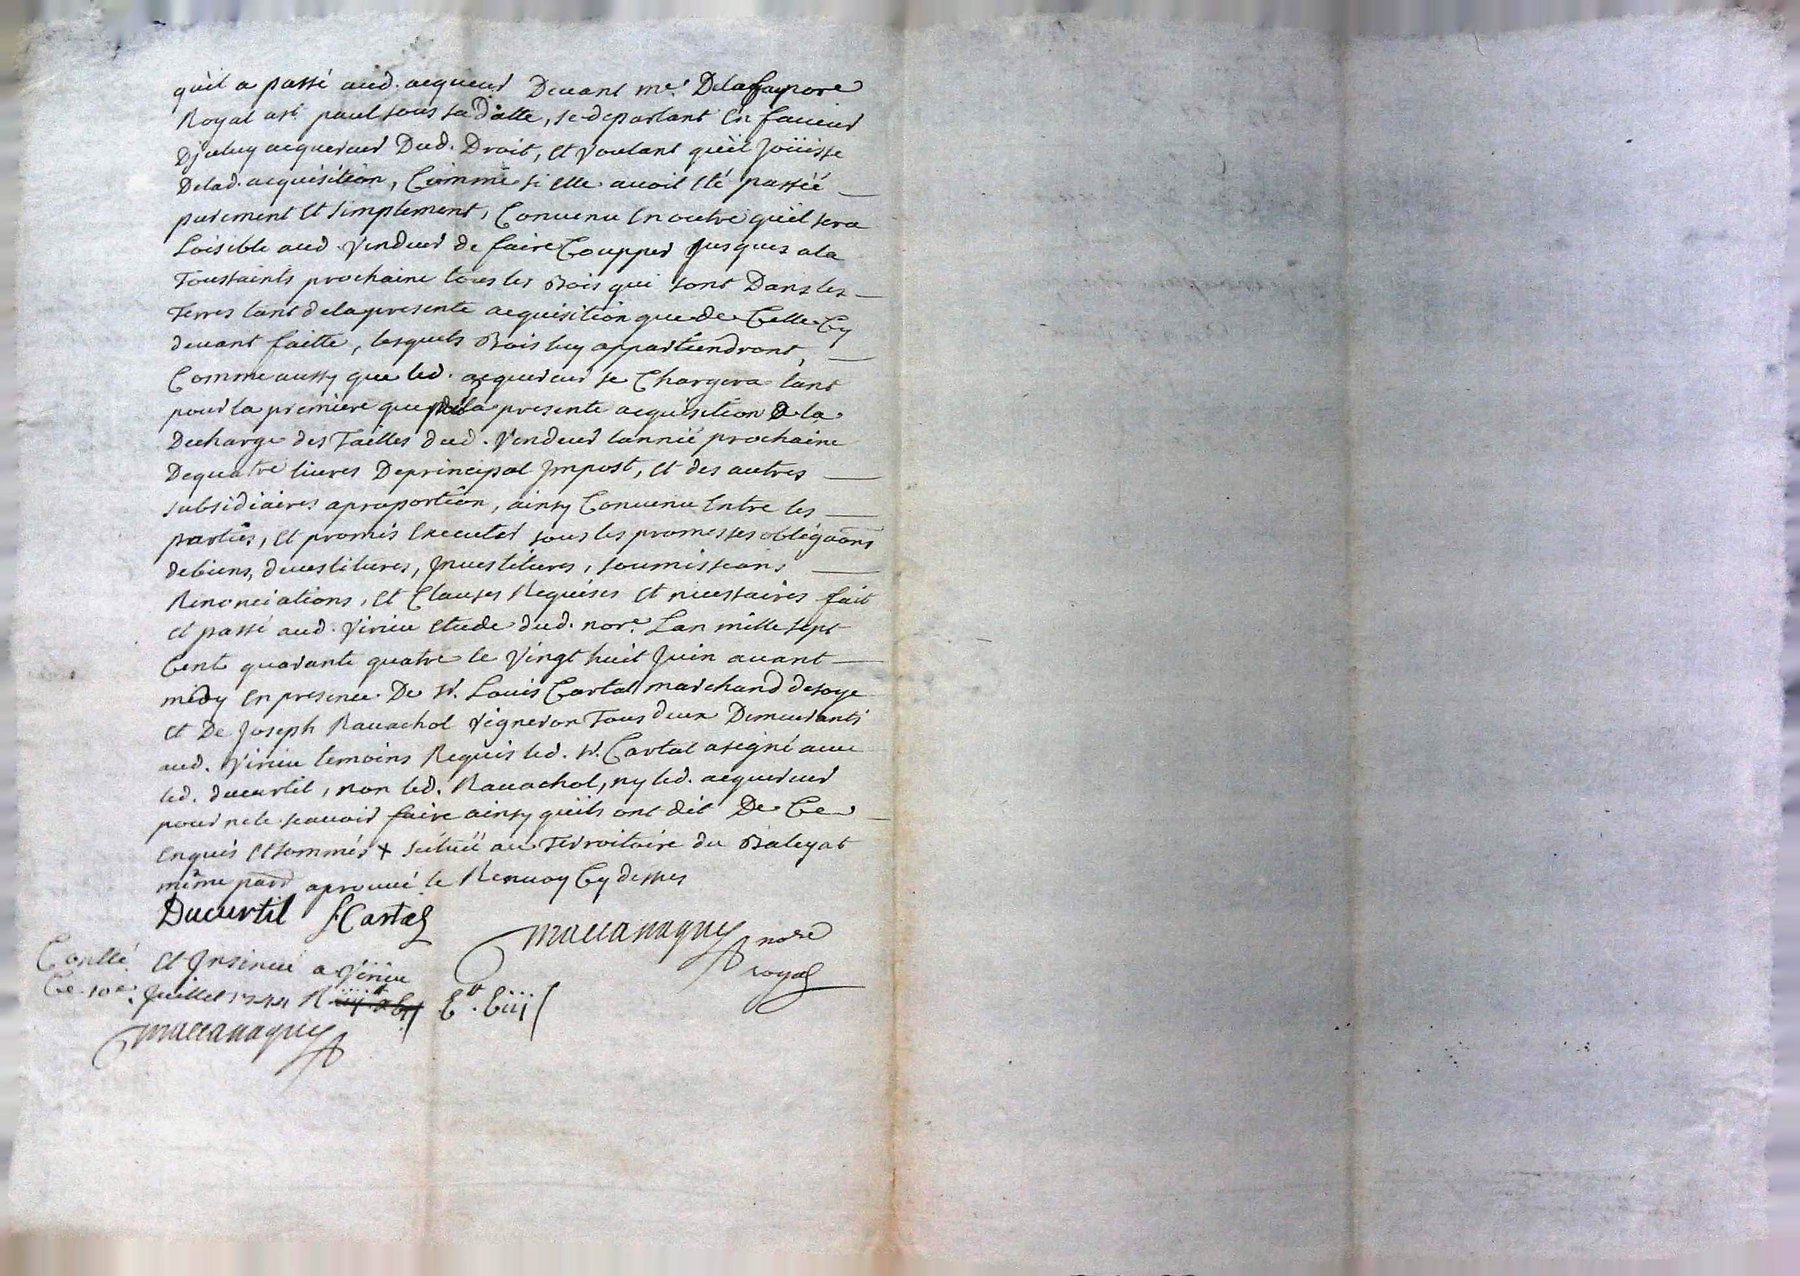 qu'il a passé aud. acquereur Devant me. Delafay nore
Royal a st paul sous sa Datte, se departant En faveur
D'jceluy acquereur Dud. Droit, et voulant qu'il Joüisse
Delad. acquisition, Comme si elle avoit eté passée
purement et simplement, Convenu En outre qu'il sera
Loisible aud. vendeur de faire Coupper Jusques a la
Toussaints prochaine tous les Bois qui sont Dans les
Terres tant de la presente acquisition que de Celle Cy
devant faitte, lesquels Bois luy appartiendront,
Comme aussy que led. acquereur se Chargera tant
pour la premiere que la presente acquisition De la
Decharge des Tailles dud. Vendeur l'année prochaine
De quatre livres De principal Jmpost, et des autres
subsidiaires a proportion, ainsy Convenu Entre les
parties, et promis Executer sous les promesses obligaons
de biens, devestitures, Jnvestitures, soumissions,
Renonciations, et Clauses Requises et necessaires fait
et passé aud. Virieu Etude dud. nore. Lan mille sept
Cent quarante quatre le Vingt huit Juin avant
midy En presence De sr. Louis Cartal marchand de soye
et De Joseph Ravachol vigneron Tous deux Demeurants
aud. Virieu temoins Requis led. sr. Cartal a signé avec
led. ducurtil, non led. Ravachol, ny led. acquereur
pour ne le scavoir faire ainsy qu'ils ont dit De Ce
Enquis et sommés + scituée au Territoire du Baleyat
même parr aprouvé le Renvoy Cy dessus
Ducurtil LCartal
maccanaguy nore
royal
Conllé et Jnsinué a Virieu
Ce 10e. Juillet 1744 R
maccanaguy